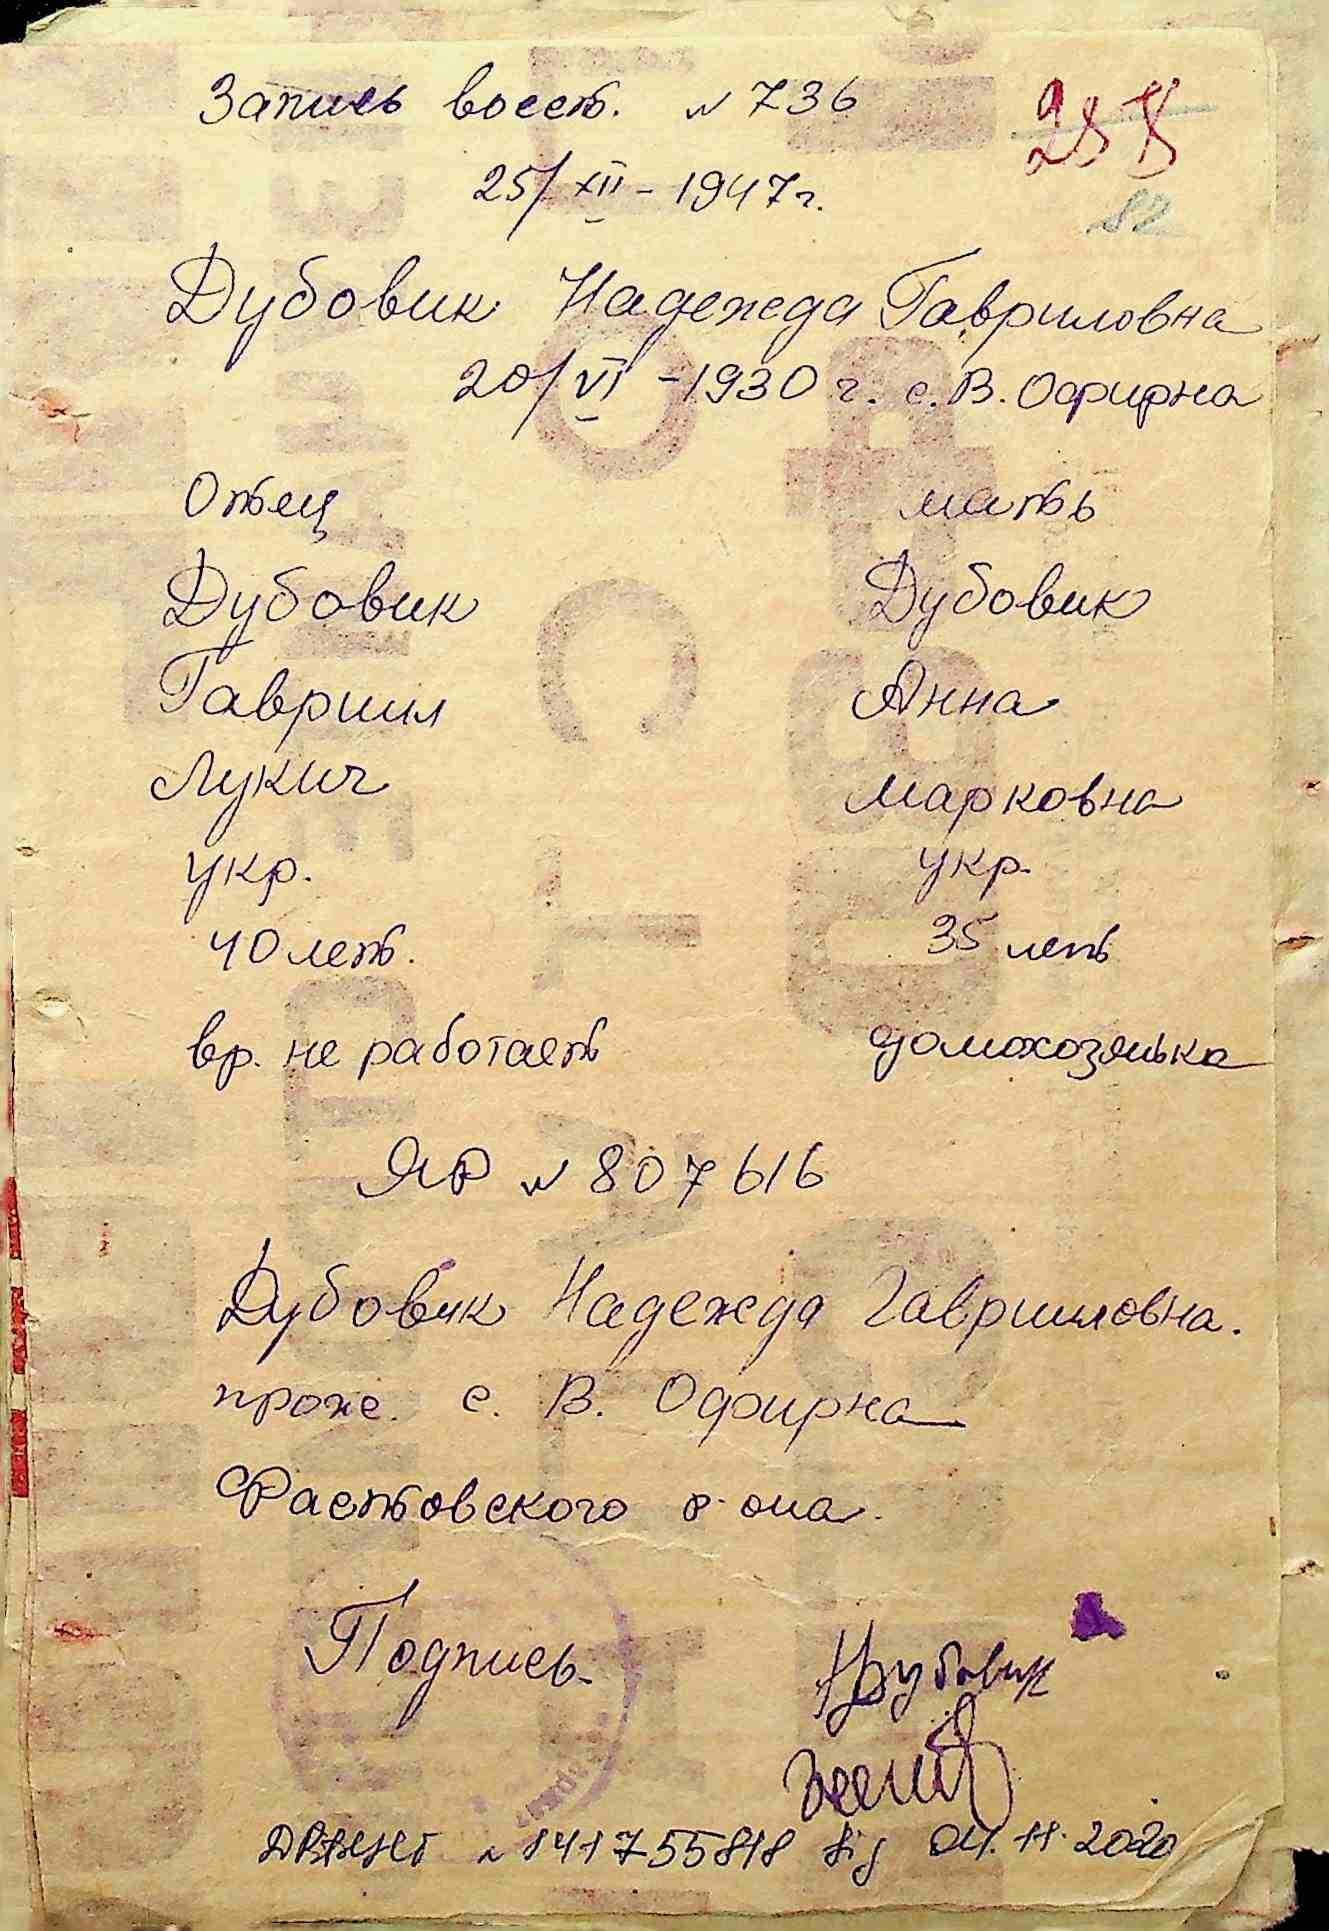 Запись восст. № 736
25/XII - 1947 г.
82
Дубовик Надежда Гавриловна
20/VI - 1930 г. с. В. Офирна
Отец мать
Дубовик Дубовик
Гавриил Анна
Лукич Марковна
укр. укр.
40 лет. 35 лет
вр. не работает домохозяйка
ЯР № 807616
Дубовик Надежда Гавриловна.
прож. с. В. Офирна
Фастовского р-она.
Подпись НДубовик
№ 8417558 від 04.11.2020